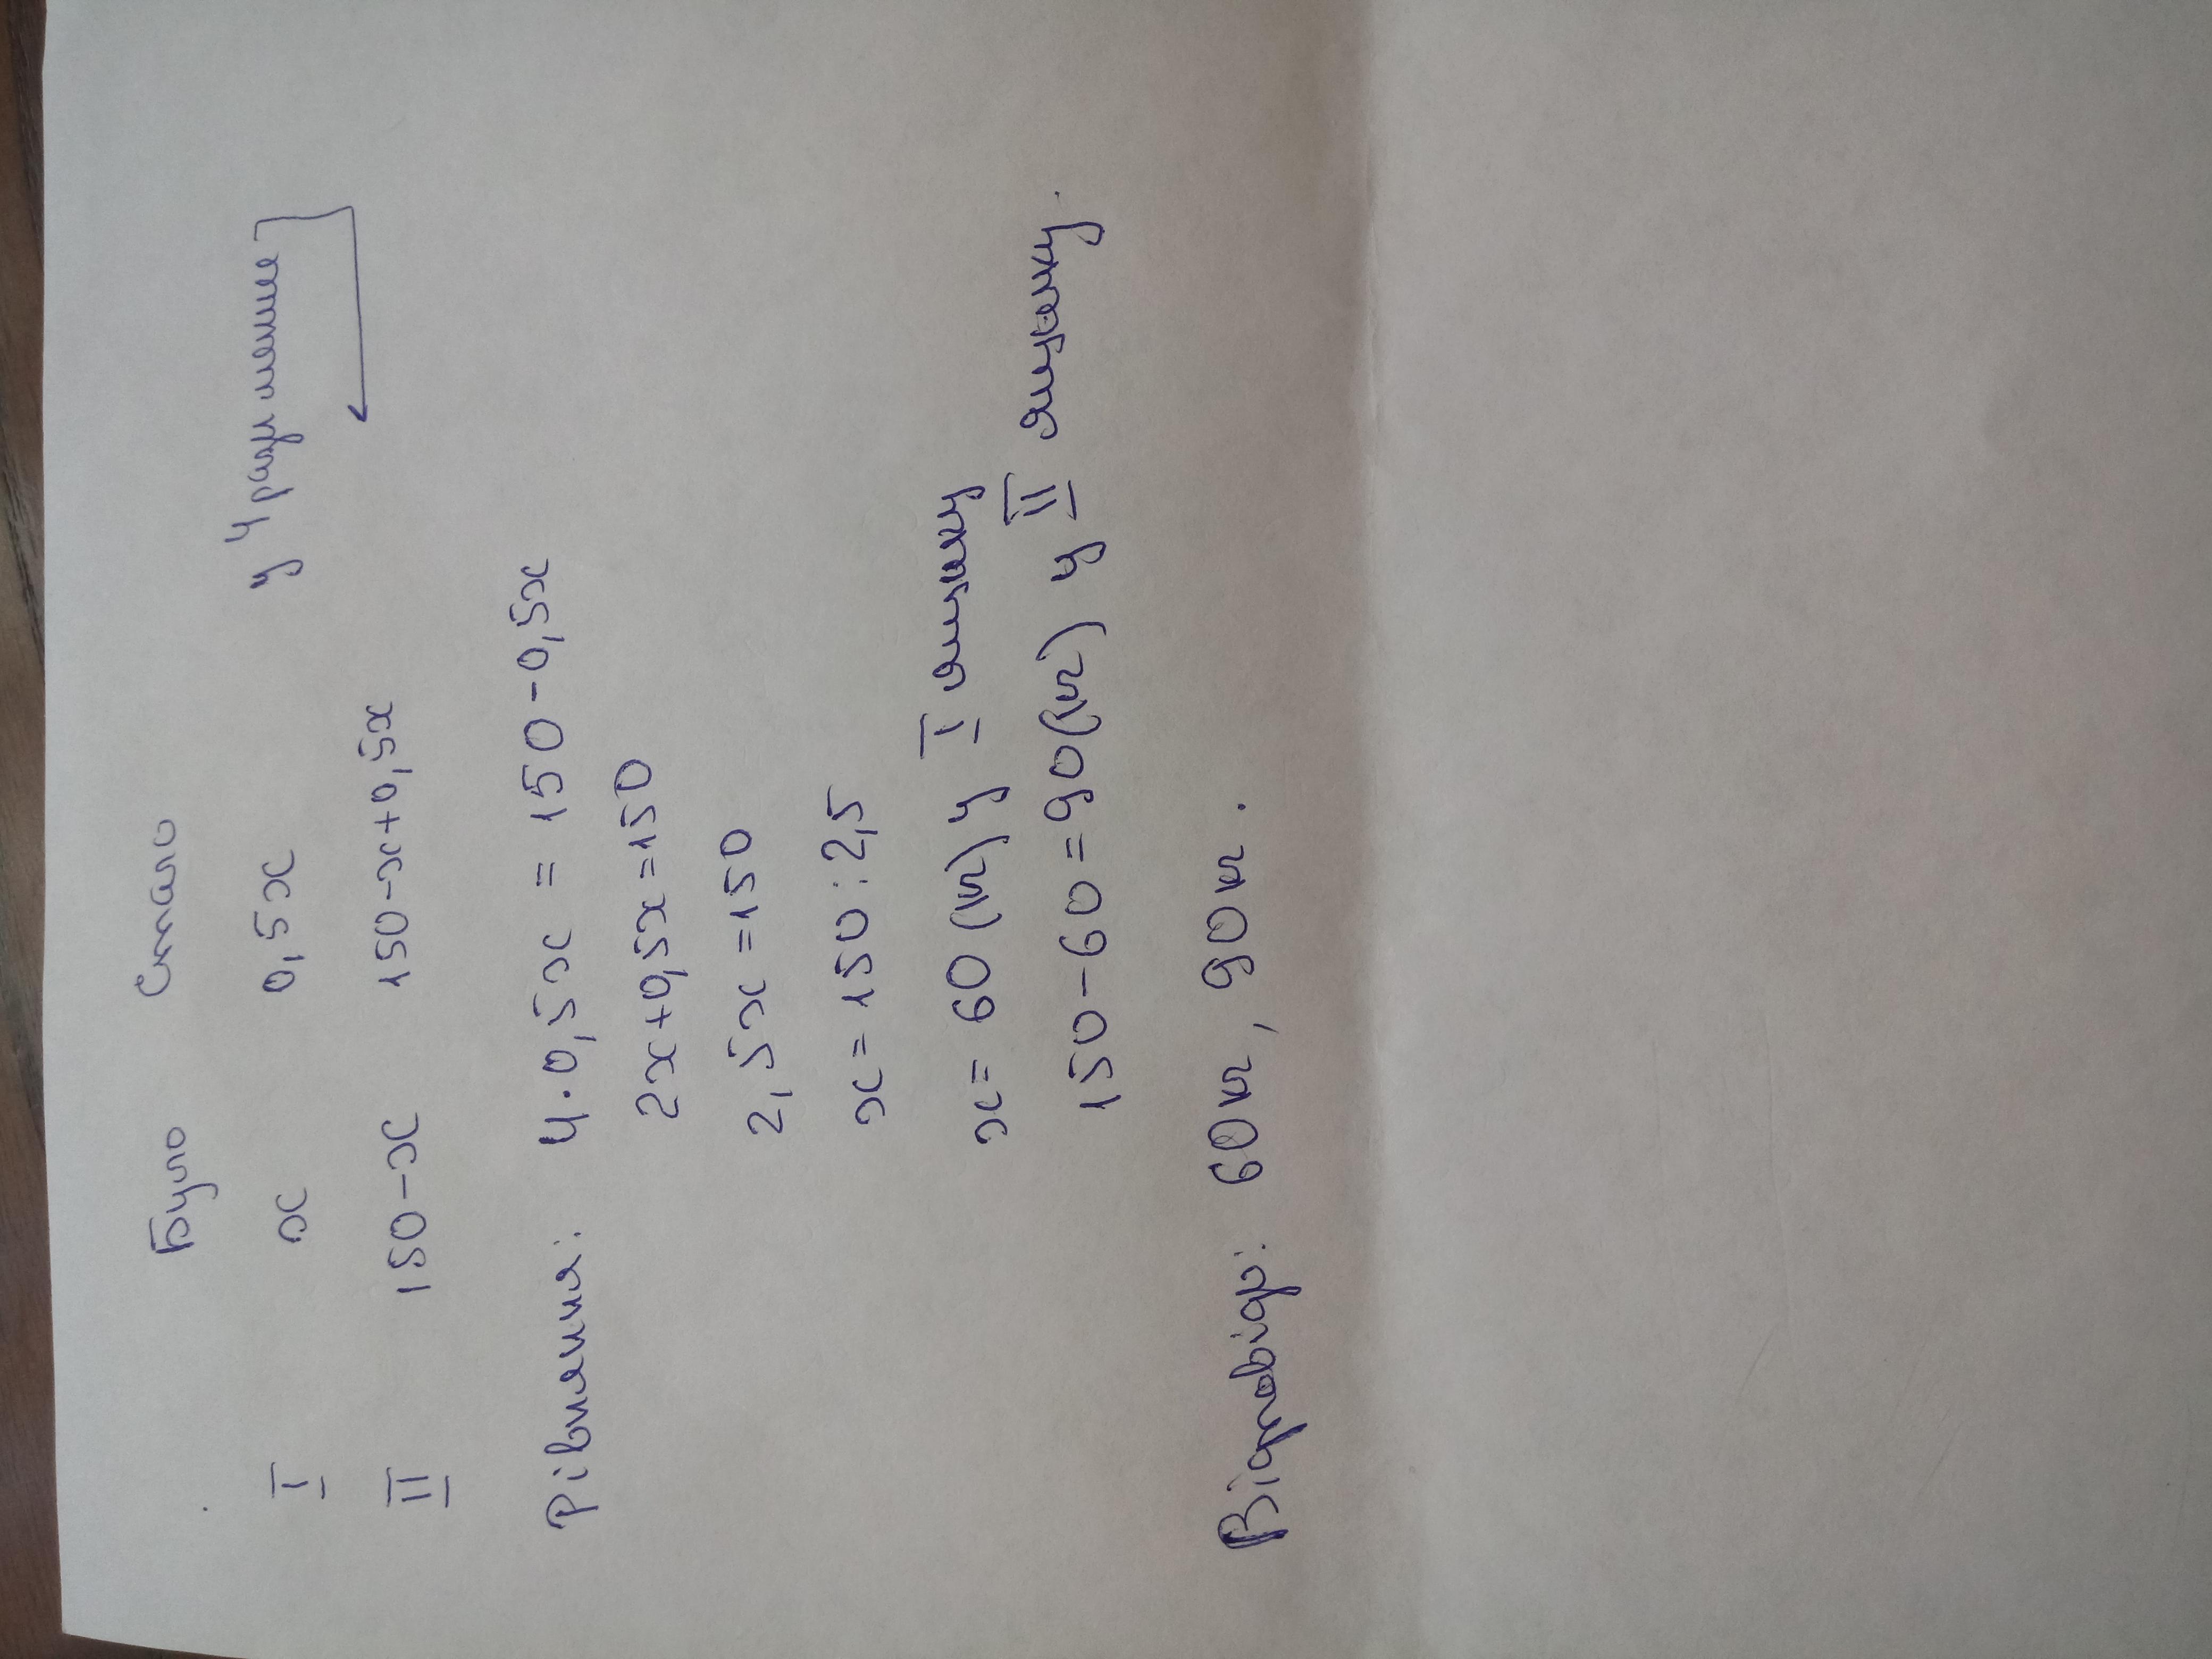 Було Стало
I x 0,5x у 4 рази менше
II 150-x 150-x+0,5x
Рівняння: 4·0,5x = 150-0,5x
2x+0,5x=150
2,5x=150
x=150:2,5
x=60(кг) у I ящику
150-60=90(кг) у II ящику.
Відповідь: 60кг, 90кг.